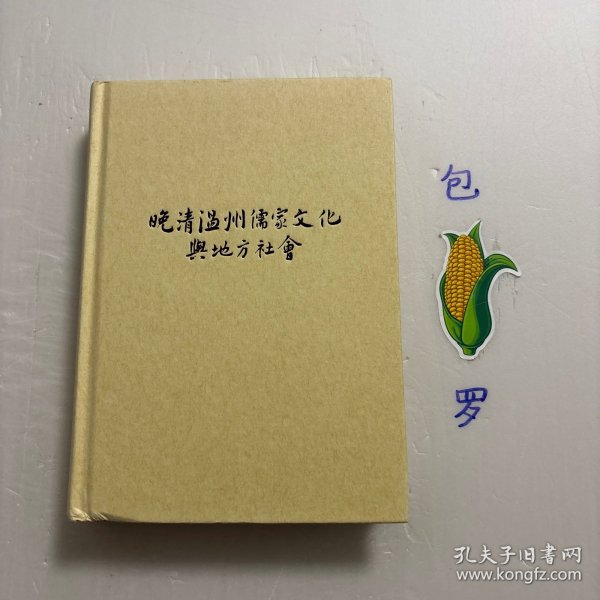 晚清温州儒家文化
與地方社會
包
罗
孔夫子旧书网
www.kongfz.com